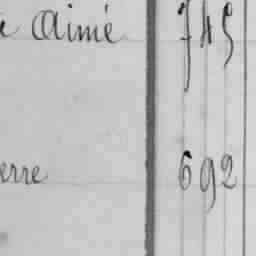 e Aimé 745
erre 692